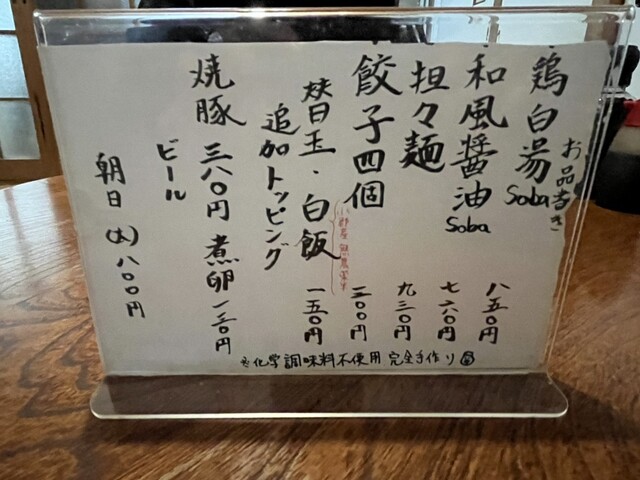 お品書き
鶏白湯Soba 八五〇円
和風醤油Soba 七六〇円
担々麺 九三〇円
餃子四個 二〇〇円
替玉・白飯 一五〇円
追加トッピング
焼豚 三八〇円 煮卵 一三〇円
ビール
朝日(大) 八〇〇円
※化学調味料不使用 完全手作り